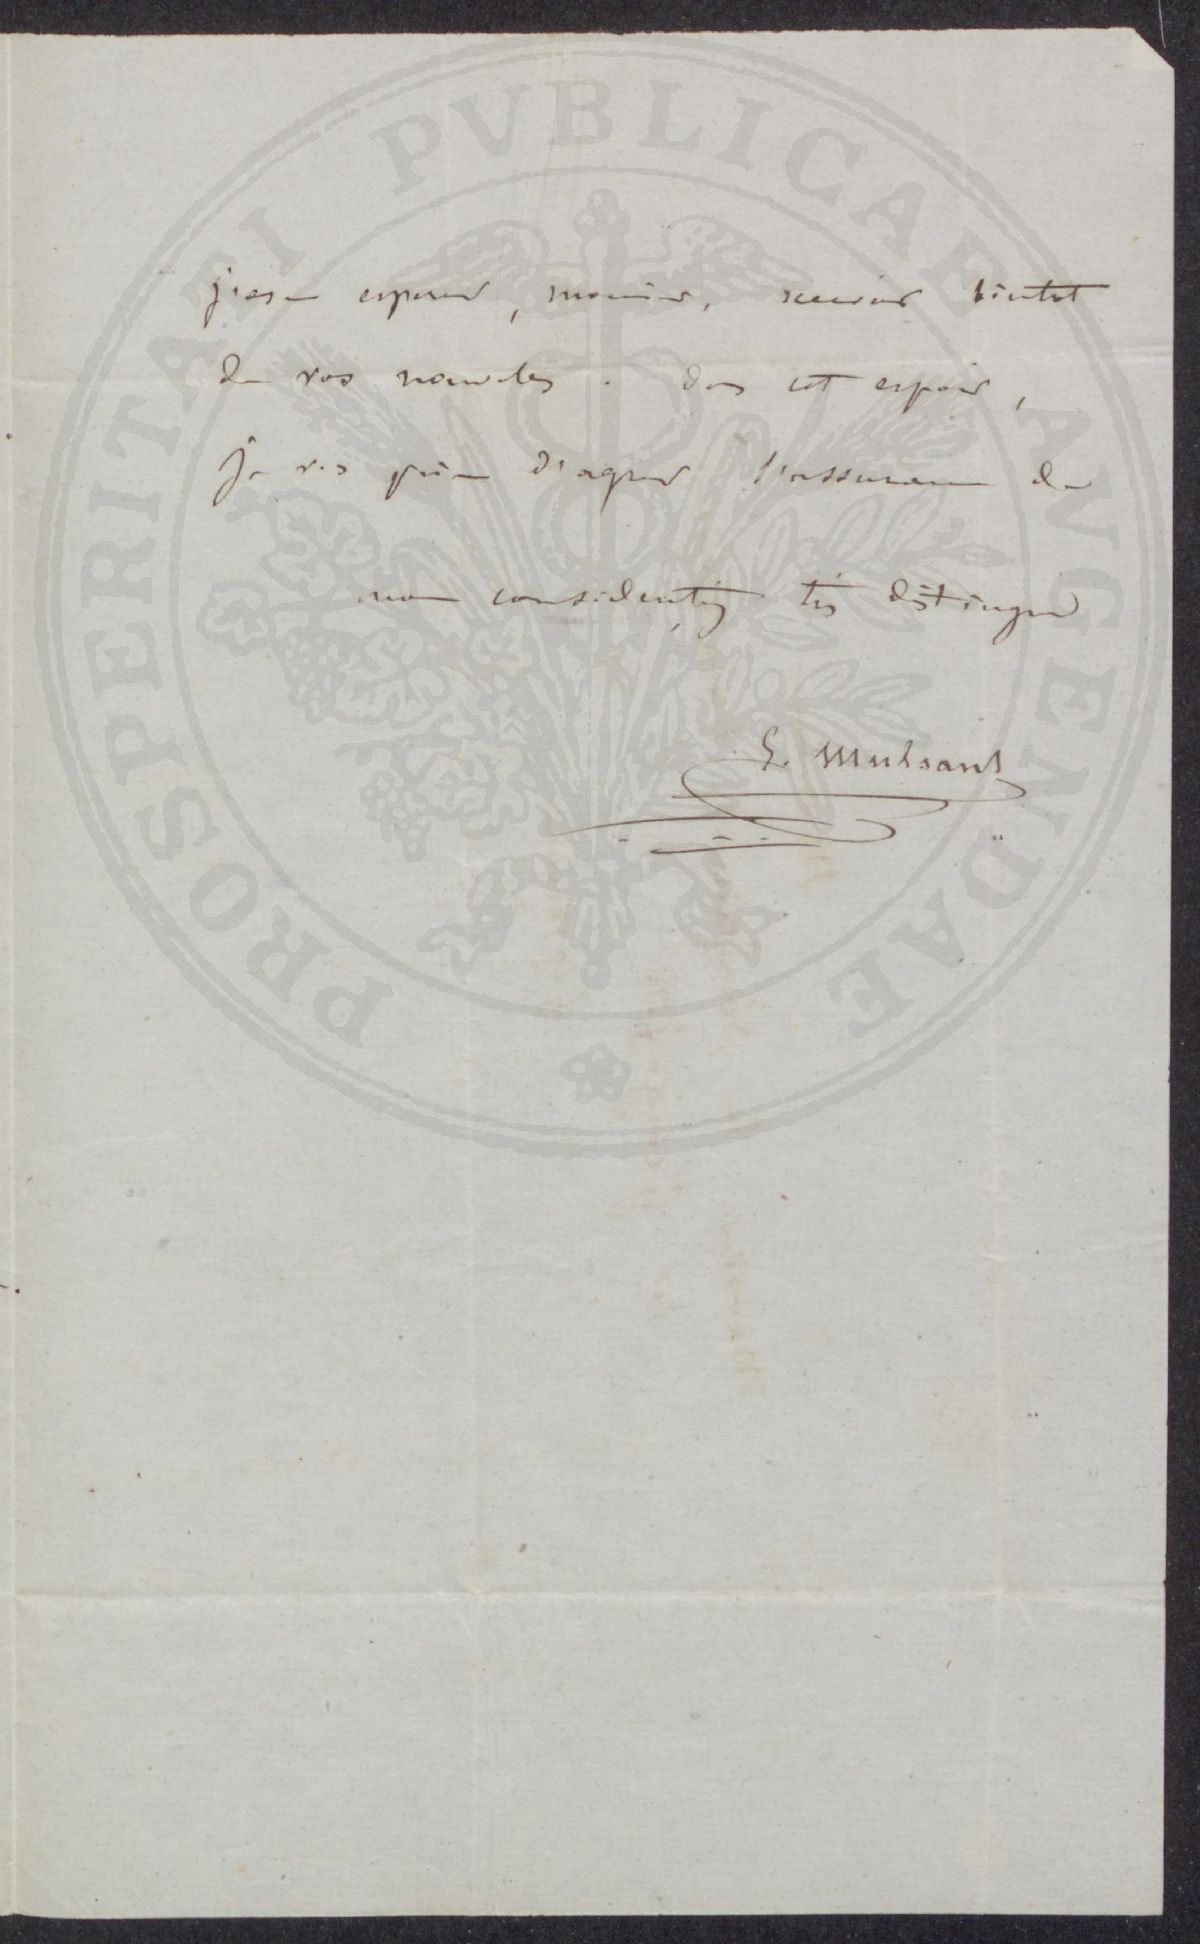 PROSPERITATI PVBLICAE AVGENDAE
j'ose espérer, monsieur, recevoir bientot
de vos nouvelles. dans cet espoir,
je vous prie d'agréer l'assurance de
ma considération très distinguée
E. Mulsant